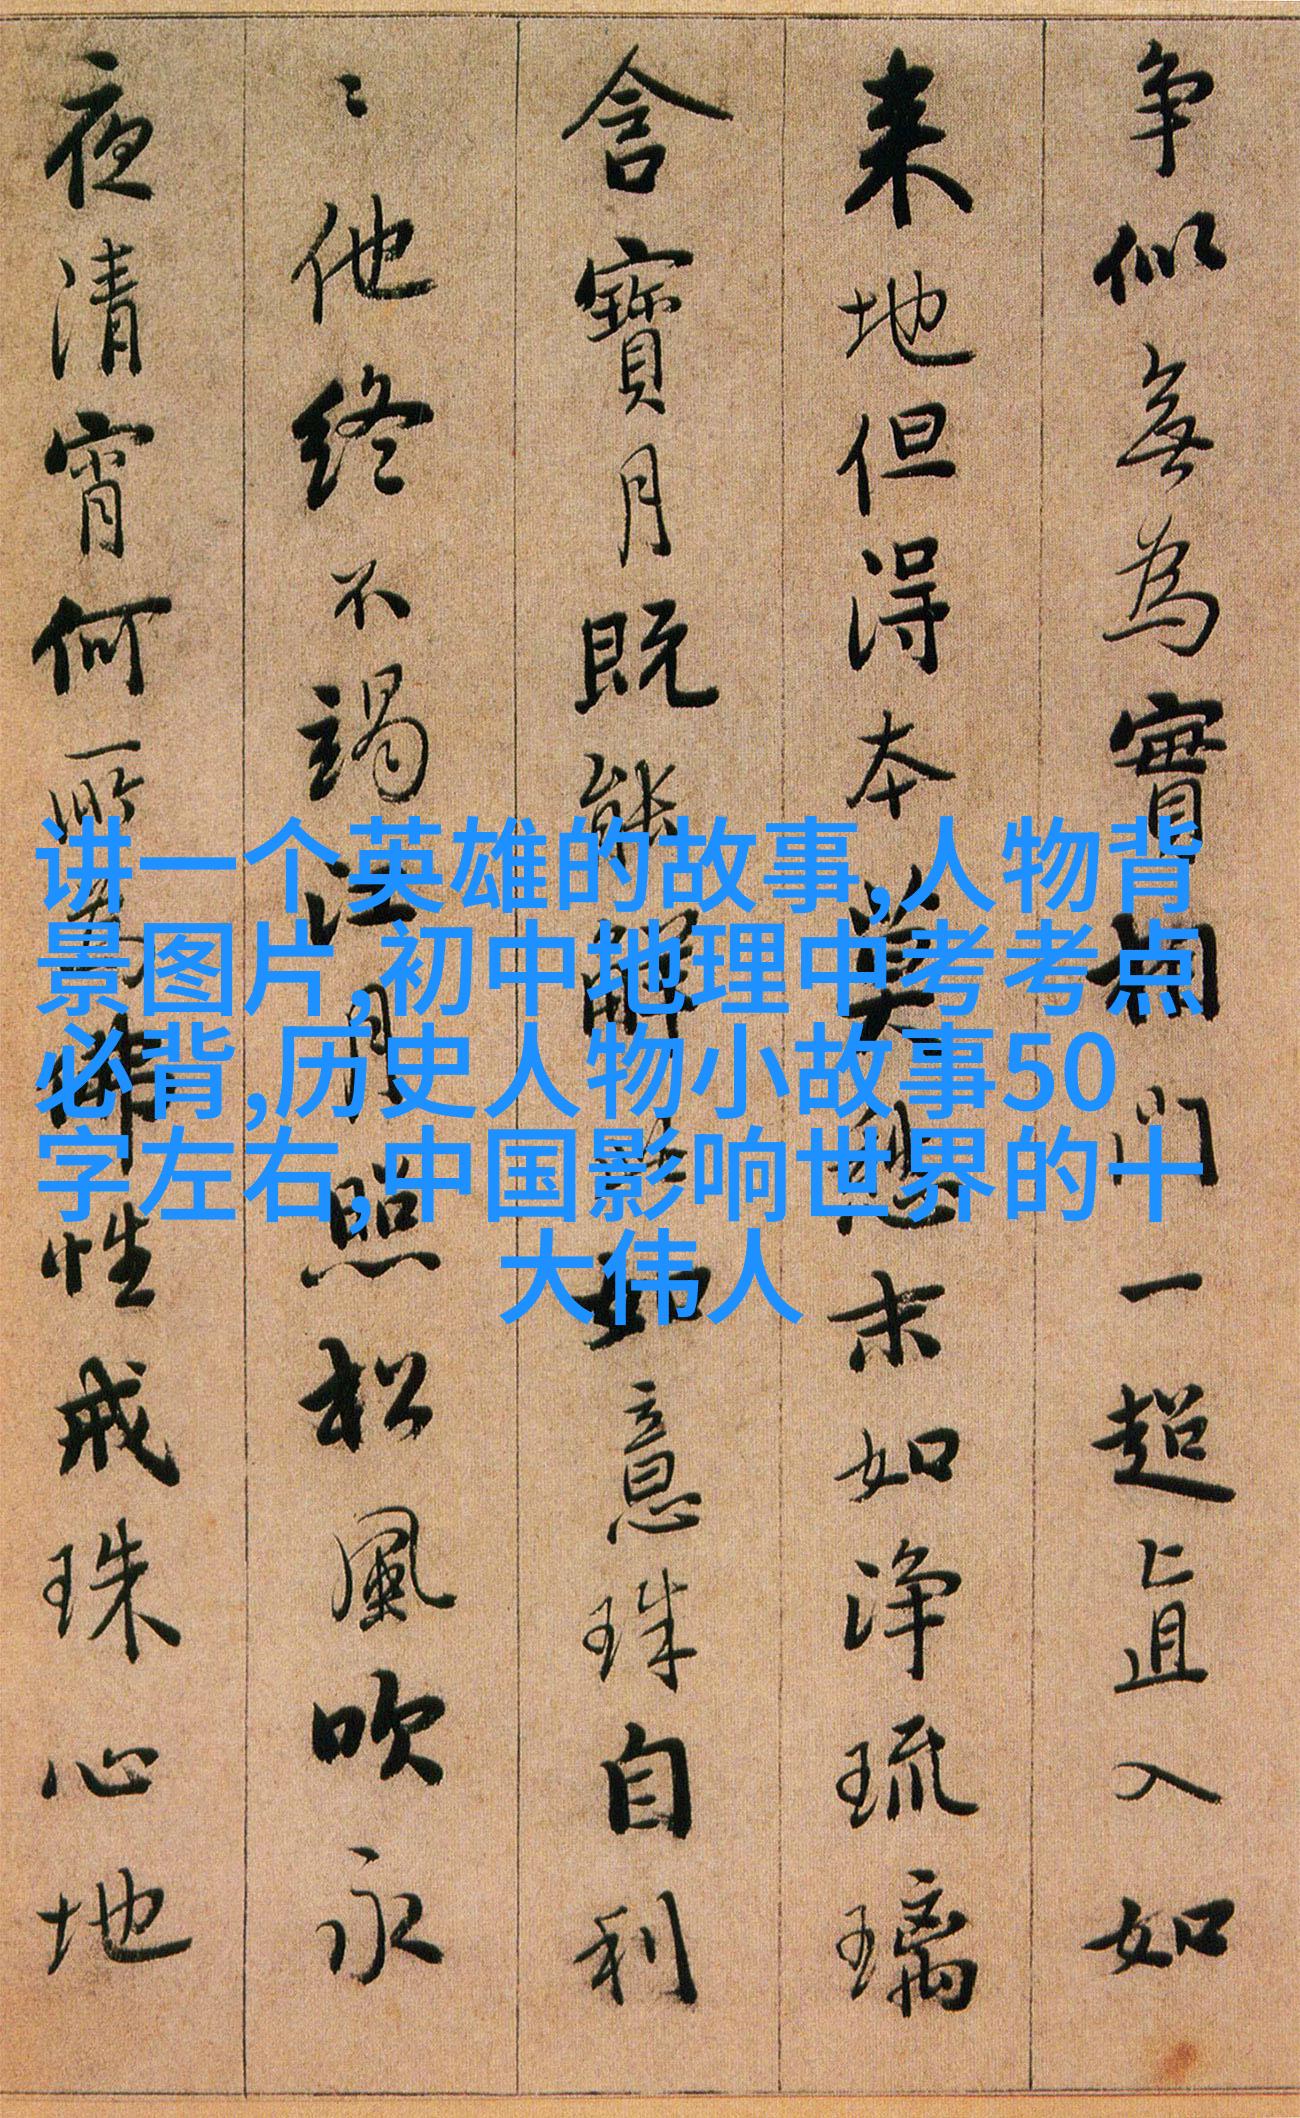 争似無為實相门一超直入如
来地但得本莫愁末如净琉璃
含寶月既能解此如意珠自利
〻他终不竭江月照松風吹永
夜清宵何所為佛性戒珠心地
讲一个英雄的故事,人物背
景图片,初中地理中考考点
必背,历史人物小故事50
字左右,中国影响世界的十
大伟人